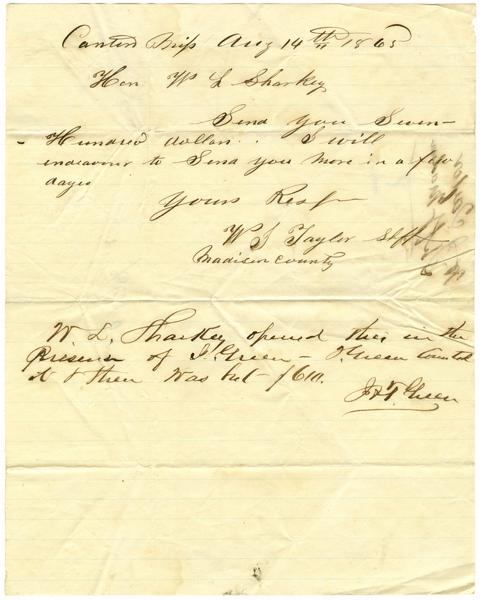 Canton Miss Aug 14th 1865
Hon W L Sharkey
Send you Seven-
Hundred dollars.. I will
endeavour to Send you More in a few
days
Yours Resp
W J Taylor Shff
Madison County
W. L. Sharkey opened this in the
presence of J. Green - J. Green Counted
it & there was but $610.
J. T. Green